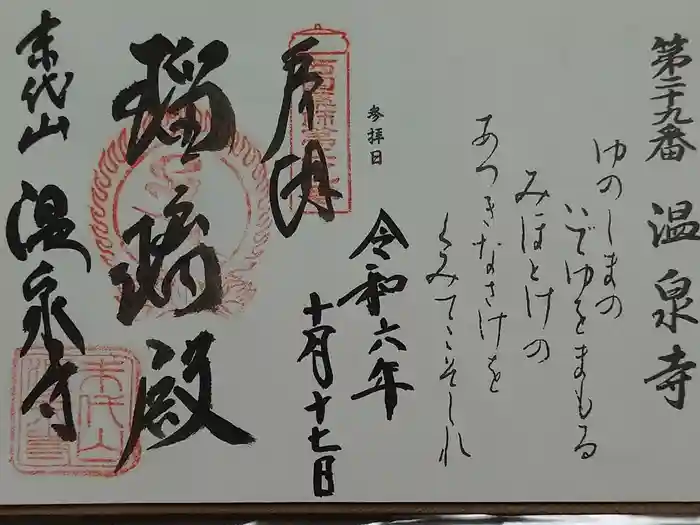 第二十九番 温泉寺
ゆのしまの
いでゆをまもる
みほとけの
あつきなさけを
くみてこそしれ
参拝日
令和六年
十月十七日
奉拝
西国薬師第二十九番
瑠璃殿
末代山 温泉寺
末代山